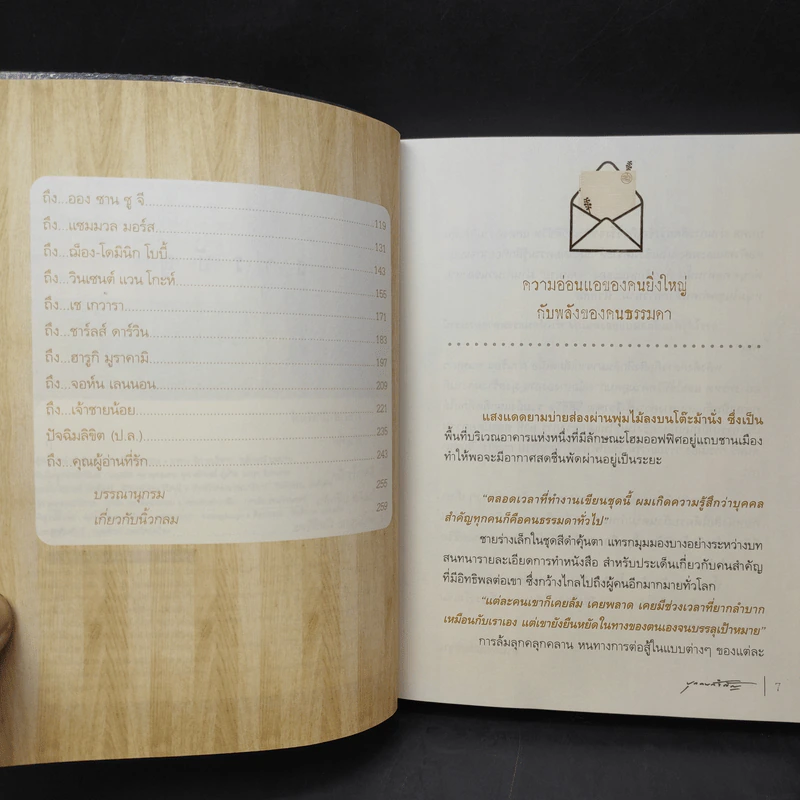 ถึง...ออง ซาน ซู จี 119
ถึง...แซมมวล มอร์ส 131
ถึง...ฌ็อง-โดมินิก โบบี้ 143
ถึง...วินเซนต์ แวน โกะห์ 155
ถึง...เช เกวารา 171
ถึง...ชาร์ลส์ ดาร์วิน 183
ถึง...ฮารูกิ มูราคามิ 197
ถึง...จอห์น เลนนอน 209
ถึง...เจ้าชายน้อย 221
ปัจฉิมลิขิต (ป.ล.) 235
ถึง...คุณผู้อ่านที่รัก 243
บรรณานุกรม 255
เกี่ยวกับนิ้วกลม 259
ความอ่อนแอของคนยิ่งใหญ่
กับพลังของคนธรรมดา
แสงแดดยามบ่ายส่องผ่านพุ่มไม้ลงบนโต๊ะม้านั่ง ซึ่งเป็น
พื้นที่บริเวณอาคารแห่งหนึ่งที่มีลักษณะโฮมออฟฟิศอยู่แถบชานเมือง
ทำให้พอจะมีอากาศสดชื่นพัดผ่านอยู่เป็นระยะ
“ตลอดเวลาที่ทำงานเขียนชุดนี้ ผมเกิดความรู้สึกว่าบุคคล
สำคัญทุกคนก็คือคนธรรมดาทั่วไป”
ชายร่างเล็กในชุดสีดำคุ้นตา แทรกมุมมองบางอย่างระหว่างบท
สนทนารายละเอียดการทำหนังสือ สำหรับประเด็นเกี่ยวกับคนสำคัญ
ที่มีอิทธิพลต่อเขา ซึ่งกว้างไกลไปถึงผู้คนอีกมากมายทั่วโลก
“แต่ละคนเขาก็เคยล้ม เคยพลาด เคยมีช่วงเวลาที่ยากลำบาก
เหมือนกับเราเอง แต่เขายังยืนหยัดในทางของตนเองจนบรรลุเป้าหมาย”
การล้มลุกคลุกคลาน หนทางการต่อสู้ในแบบต่างๆ ของแต่ละ
7